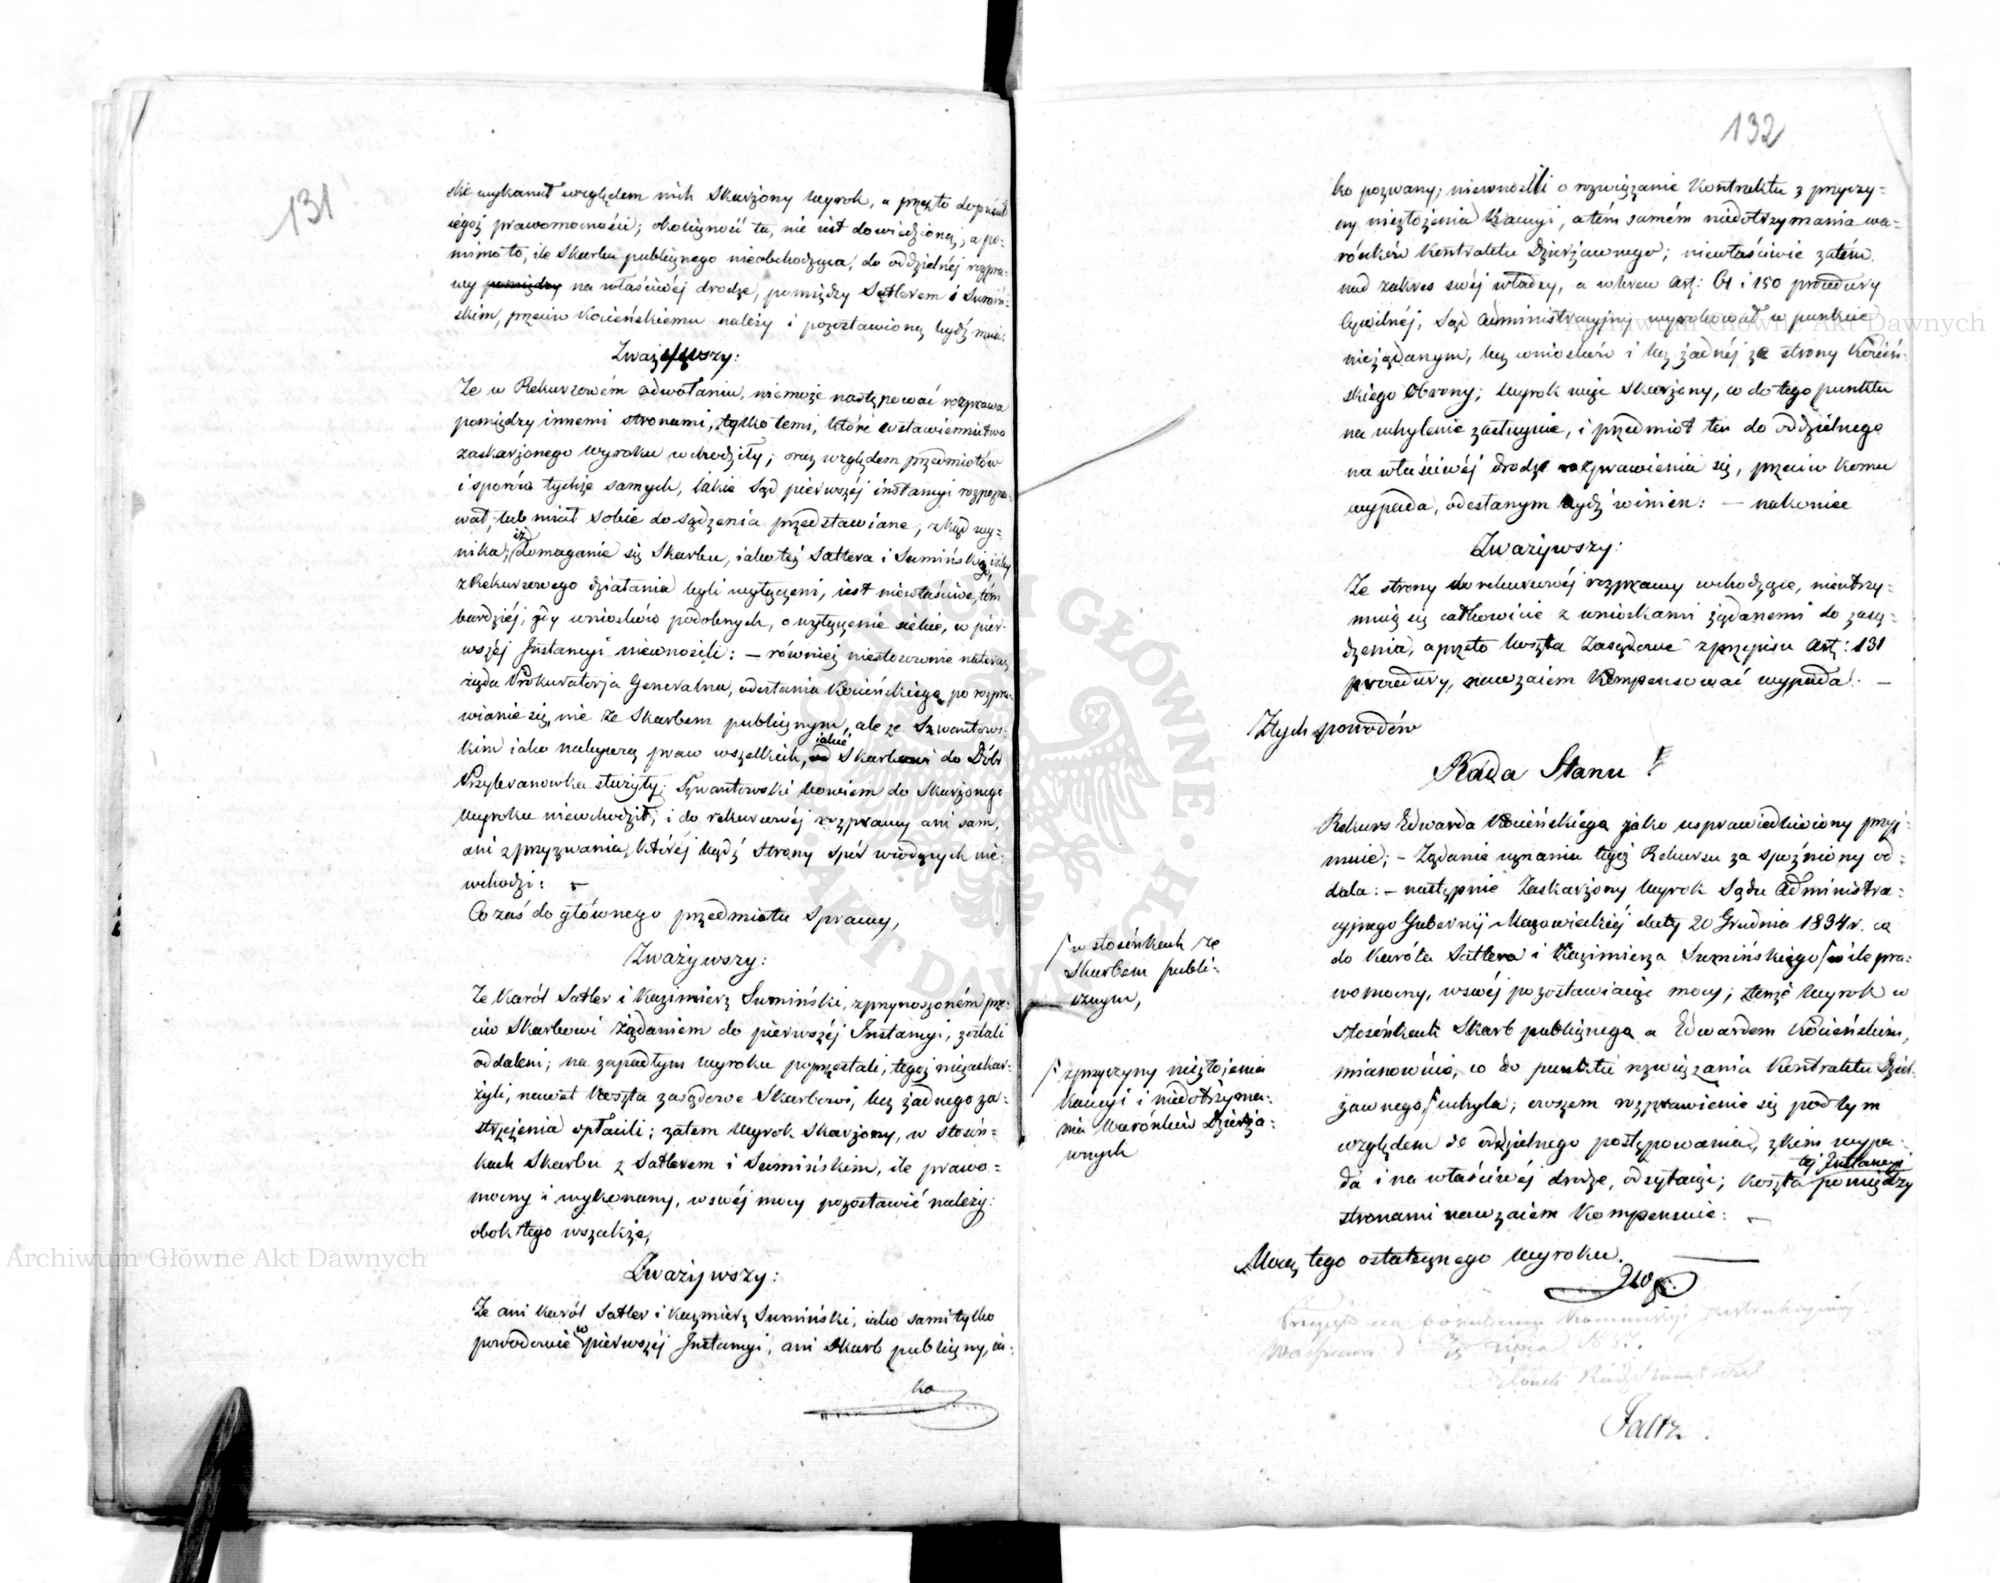 131
skie wykonał względem nich Skarżony Wyrok, a przeto dopuścił
iegoż prawomocności; okoliczność ta, nie iest dowiedzioną, a po-
mimo to, ile Skarbu publicznego nieobchodząca, do oddzielnéj rozpra-
wy pomiędzy na właściwéj drodze, pomiędzy Satlerem i Sumiń-
skim, przeciw Kocieńskiemu należy i pozostawioną bydź musi.
Zważywszy:
Że w Rekursowém odwołaniu, niemoże następować rozprawa
pomiędzy innemi stronami, tylko temi, które w stawiennictwo
zaskarżonego wyroku wchodziły; oraz względem przedmiotów
i sporów tychże samych, iakie Sąd pierwszéj instancyi rozpozna-
wał, lub miał sobie do sądzenia przedstawiane; zkąd wy-
nika, iż Domaganie się Skarbu, iako téż Satlera i Sumińskiego, iżby
z Rekursowego działania byli wyłączeni, iest niewłaściwe, tém
bardziéj, gdy wniosków podobnych, o wyłączenie siebie, w pier-
wszéj Instancyi niewnosili: — równiéż niestosownie nateraz
żąda Prokuratorja Generalna, odesłania Kocieńskiego po rozpra-
wianie się, nie ze Skarbem publicznym, ale ze Szwantows-
kim iako nabywcą praw wszelkich, iakie Skarbowi do Dóbr
Przybranowka służyły; Szwantowski bowiem do Skarżonego
Wyroku niewchodził, i do rekursowéj rozprawy ani sam,
ani z przyzwania, któréj bądź Strony spór wiodących nie-
wchodzi: —
Co zaś do głównego przedmiotu Sprawy,
Zważywszy:
Że Karól Satler i Kazimierz Sumiński, z przynoszoném prze-
ciw Skarbowi Żądaniem do pierwszéj Instancyi, zostali
oddaleni; na zapadłym Wyroku poprzestali, tegoż niezaskar-
żyli, nawet koszta zasądzone Skarbowi, bez żadnego za-
strzeżenia opłacili; zatem Wyrok Skarżony, w stosón-
kach Skarbu z Satlerem i Sumińskim, ile prawo-
mocny i wykonany, w swéj mocy pozostawić należy:
obok tego wszakże,
Zważywszy:
Że ani Karól Satler i Kazimierz Sumiński, iako sami tylko
powodowie w pierwszéj Instancyi, ani Skarb publiczny, ia-
ko
132
ko pozwany; niewnosili o rozwiązanie Kontraktu z przyczy-
ny niezłożenia Kaucyi, a tém samém niedotrzymania wa-
rónków Kontraktu Dzierżawnego; niewłaściwie zatém
nad zakres swéj władzy, a wbrew Art: 61 i 150 procedury
Cywilnéj, Sąd Administracyjny wyrokował w punkcie
nieżądanym, bez wniosków i bez żadnéj ze strony Kocień-
skiego Obrony; Wyrok więc Skarżony, co do tego punktu
na uchylenie zasługuie, i przedmiot ten do oddzielnego
na właściwéj drodze rozprawienia się, przeciw komu
wypada, odesłanym bydź winien: — nakoniec
Zważywszy:
Że strony do rekursowéj rozprawy wchodzące, nieutrzy-
muią się całkowicie z wnioskami żądanemi do zasą-
dzenia, a przeto koszta Zasądowe z przepisu Art: 131
procedury, nawzaiem Kompensować wypada. —
Z tych powodów
Rada Stanu
Rekurs Edwarda Kocieńskiego jako usprawiedliwiony przyi-
muie; — Żądanie uznania tegoż Rekursu za spóźniony od-
dala: — następnie Zaskarżony Wyrok Sądu Administra-
cyjnego Gubernij Mazowieckiéj daty 20 Grudnia 1834 r. co
do Karóla Satlera i Kazimierza Sumińskiego ſ ile pra-
womocny, w swéj pozostawiaiąc mocy; tenże Wyrok w
stosónkach Skarb publicznego a Edwardem Kocieńskim,
mianowicie, co do punktu rozwiązania Kontraktu Dzier-
żawnego, ſ uchyla; oraz rozprawienie się pod tym
względem do oddzielnego postępowania, z kim wypa-
da i na właściwéj drodze, odsyłaiąc; koszta téj Instancyi pomiędzy
stronami nawzaiem Kompensuie: —
Mocą tego ostatecznego Wyroku.
ſ w stosónkach ze
Skarbem publi-
cznym,
ſ z przyczyny niezłożenia
Kaucyi i niedotrzyma-
nia Warónków Dzierża-
wnych
Warszawa d
Faltz.
Archiwum Główne Akt Dawnych
Archiwum Główne Akt Dawnych
ARCHIWUM GŁÓWNE AKT DAWNYCH